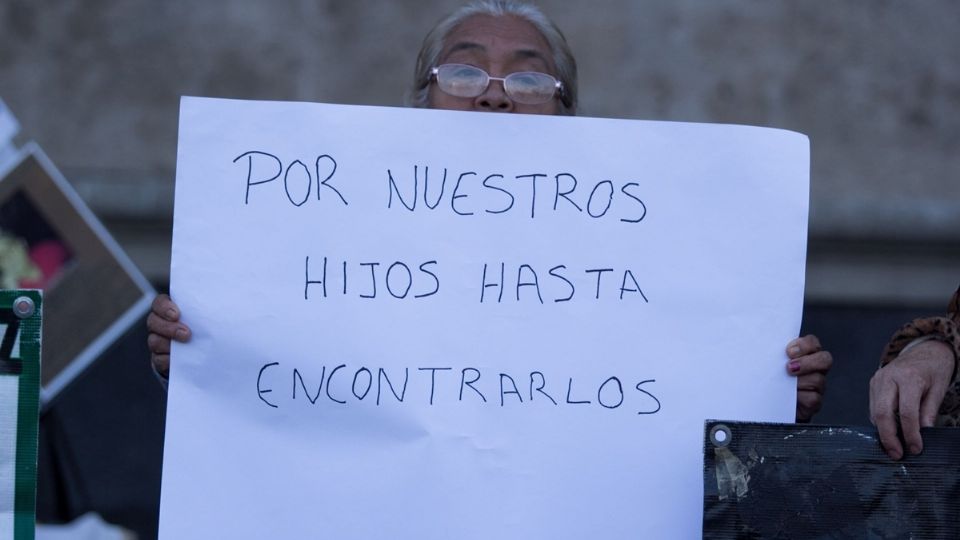 POR NUESTROS
HIJOS HASTA
ENCONTRARLOS